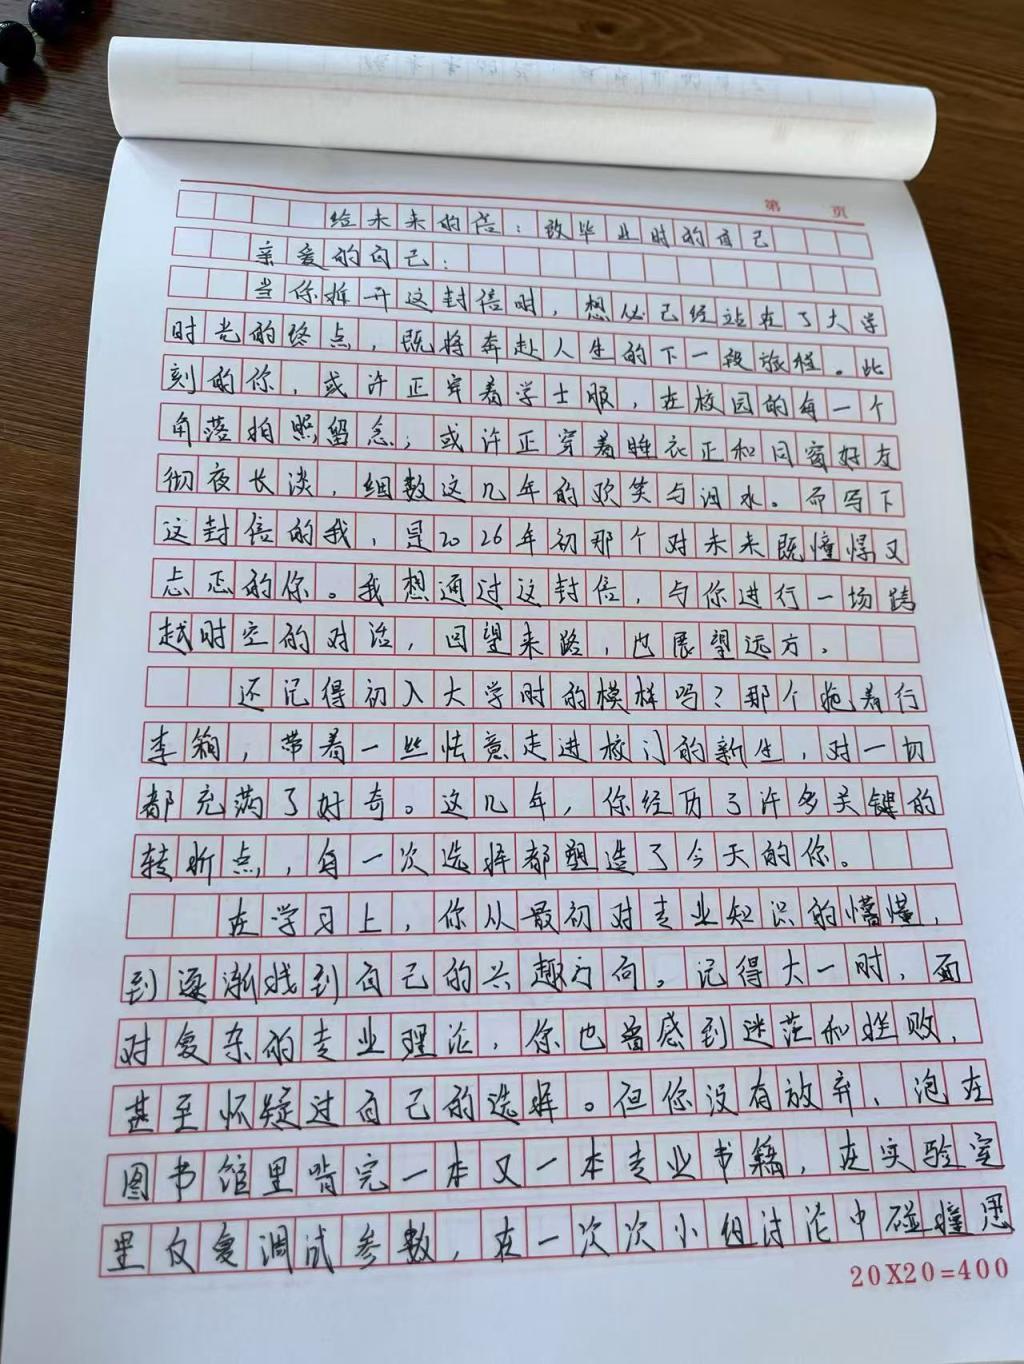 第 页
给未来的信:致毕业时的自己
亲爱的自己:
当你拆开这封信时,想必已经站在了大学
时光的终点,既将奔赴人生的下一段旅程。此
刻的你,或许正穿着学士服,在校园的每一个
角落拍照留念;或许正穿着睡衣正和同窗好友
彻夜长谈,细数这几年的欢笑与泪水。而写下
这封信的我,是2026年初那个对未来既憧憬又
忐忑的你。我想通过这封信,与你进行一场跨
越时空的对话,回望来路,也展望远方。
还记得初入大学时的模样吗?那个拖着行
李箱,带着一些怯意走进校门的新生,对一切
都充满了好奇。这几年,你经历了许多关键的
转折点,每一次选择都塑造了今天的你。
在学习上,你从最初对专业知识的懵懂,
到逐渐找到自己的兴趣方向。记得大一时,面
对复杂的专业理论,你也曾感到迷茫和挫败,
甚至怀疑过自己的选择。但你没有放弃、泡在
图书馆里啃完一本又一本专业书籍,在实验室
里反复调试参数,在一次次小组讨论中碰撞思
20X20=400